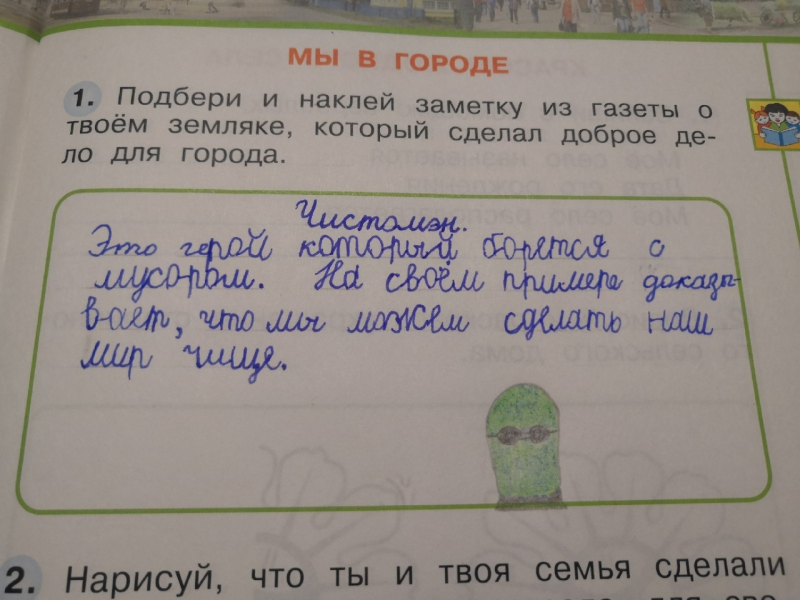 МЫ В ГОРОДЕ
1. Подбери и наклей заметку из газеты о
твоём земляке, который сделал доброе де-
ло для города.
Чистомэн.
Это герой который борется с
мусором. На своём примере доказы-
вает, что мы можем сделать наш
мир чище.
2. Нарисуй, что ты и твоя семья сделали